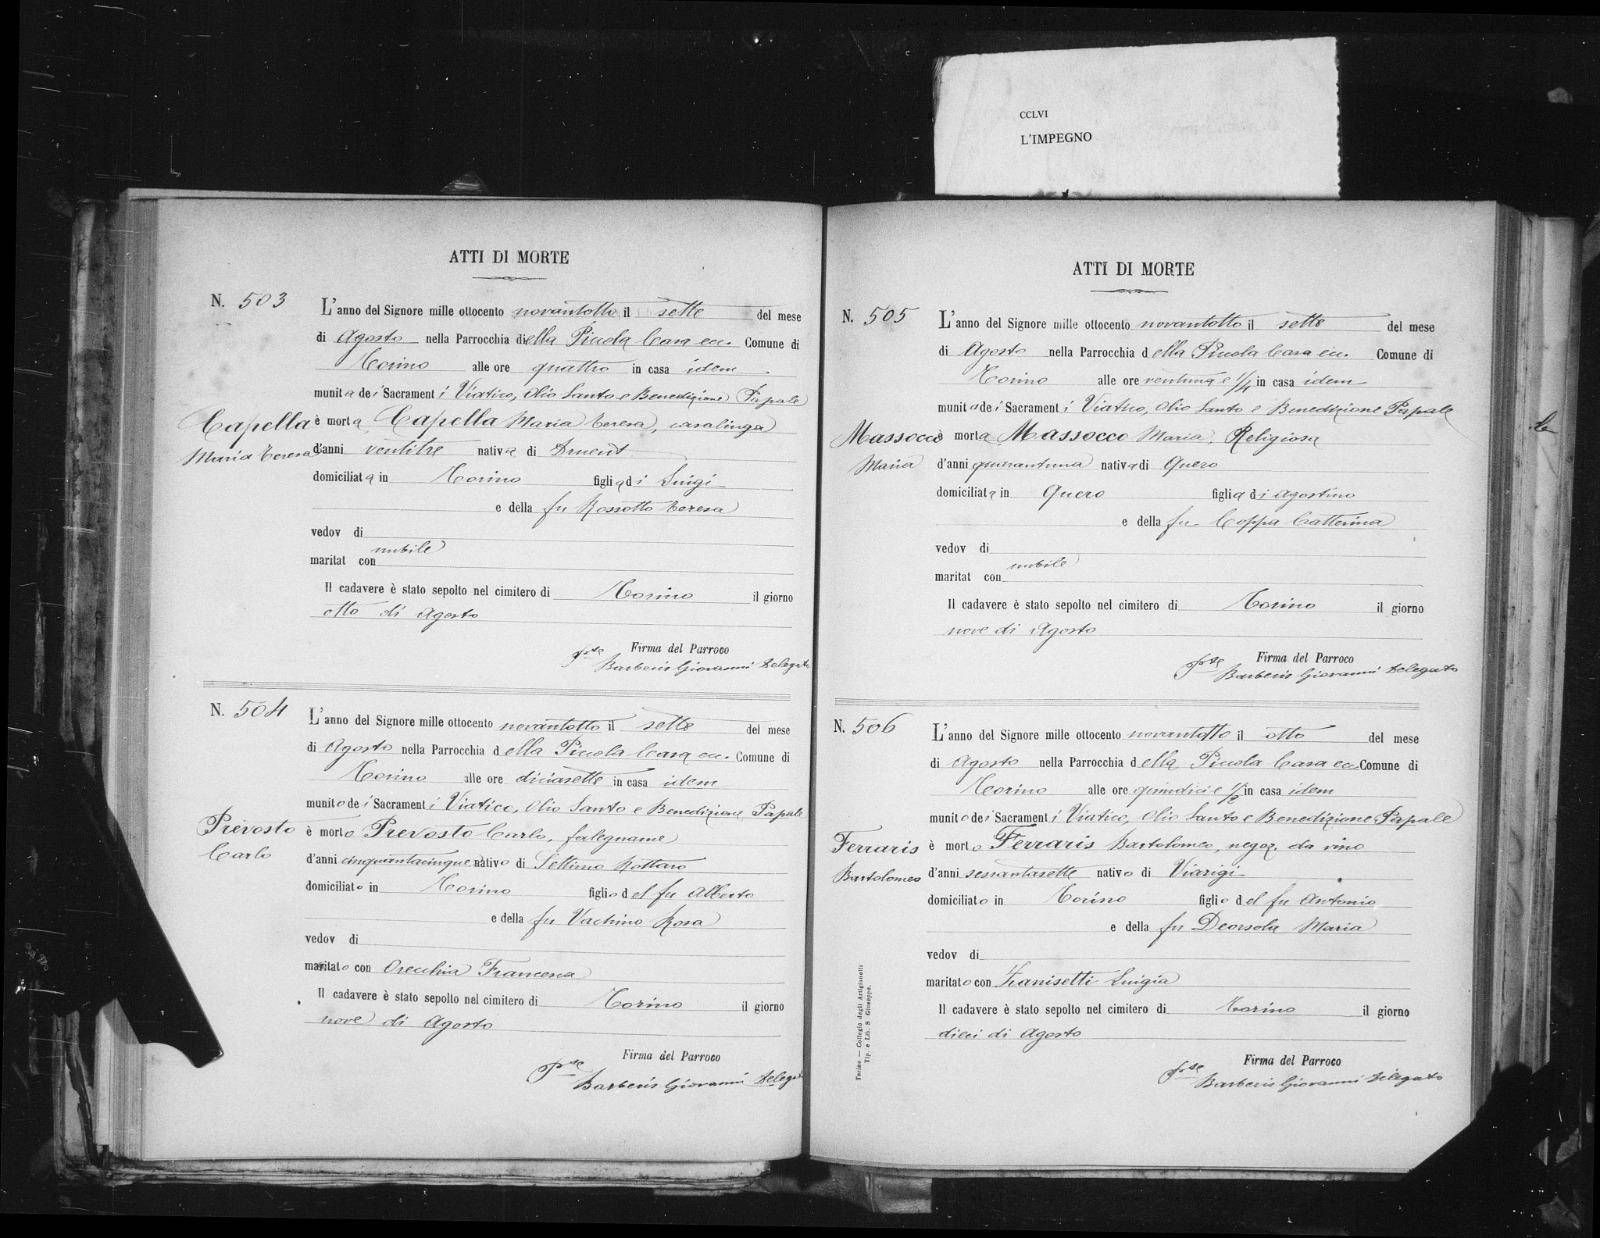 CCLVI
L'IMPEGNO
ATTI DI MORTE
N. 503
L'anno del Signore mille ottocento novantotto il sette del mese
di Agosto nella Parrocchia della Piccola Casa ecc. Comune di
Torino alle ore quattro in casa idem
munita dei Sacramenti Viatico, Olio Santo e Benedizione Papale
Capella
Maria Teresa
è morta Capella Maria Teresa, casalinga
d'anni ventitre nativa di Druent
domiciliata in Torino figlia di Luigi
e della fu Rossotto Teresa
vedov di
nubile
maritat con
Il cadavere è stato sepolto nel cimitero di Torino il giorno
otto di Agosto
Firma del Parroco
Barberis Giovanni Delegato
N. 504
L'anno del Signore mille ottocento novantotto il sette del mese
di Agosto nella Parrocchia della Piccola Casa ecc. Comune di
Torino alle ore diciasette in casa idem
munito dei Sacramenti Viatico, Olio Santo e Benedizione Papale
Prevosto
Carlo
è morto Prevosto Carlo, falegname
d'anni cinquantacinque nativo di Settimo Rottaro
domiciliato in Torino figlio del fu Alberto
e della fu Vachino Rosa
vedov di
maritato con Orecchia Francesca
Il cadavere è stato sepolto nel cimitero di Torino il giorno
nove di Agosto
Firma del Parroco
Barberis Giovanni Delegato
ATTI DI MORTE
N. 505
L'anno del Signore mille ottocento novantotto il sette del mese
di Agosto nella Parrocchia della Piccola Casa ecc. Comune di
Torino alle ore ventuna e 1/4 in casa idem
munita dei Sacramenti Viatico, Olio Santo e Benedizione Papale
Massocco
Maria
è morta Massocco Maria, Religiosa
d'anni quarantuna nativa di Quero
domiciliata in Quero figlia di Agostino
e della fu Coppa Catterina
vedov di
nubile
maritat con
Il cadavere è stato sepolto nel cimitero di Torino il giorno
nove di Agosto
Firma del Parroco
Barberis Giovanni Delegato
N. 506
L'anno del Signore mille ottocento novantotto il otto del mese
di Agosto nella Parrocchia della Piccola Casa ecc Comune di
Torino alle ore quindici e 1/2 in casa idem
munito dei Sacramenti Viatico, Olio Santo e Benedizione Papale
Ferraris
Bartolomeo
è morto Ferraris Bartolomeo, negoz. da vino
d'anni sessantasette nativo di Viarigi
domiciliato in Torino figlio del fu Antonio
e della fu Deorsola Maria
vedov di
maritato con Zanisetti Luigia
Il cadavere è stato sepolto nel cimitero di Torino il giorno
dieci di Agosto
Firma del Parroco
Barberis Giovanni Delegato
Torino — Collegio degli Artigianelli
Tip. e Lib. S. Giuseppe.